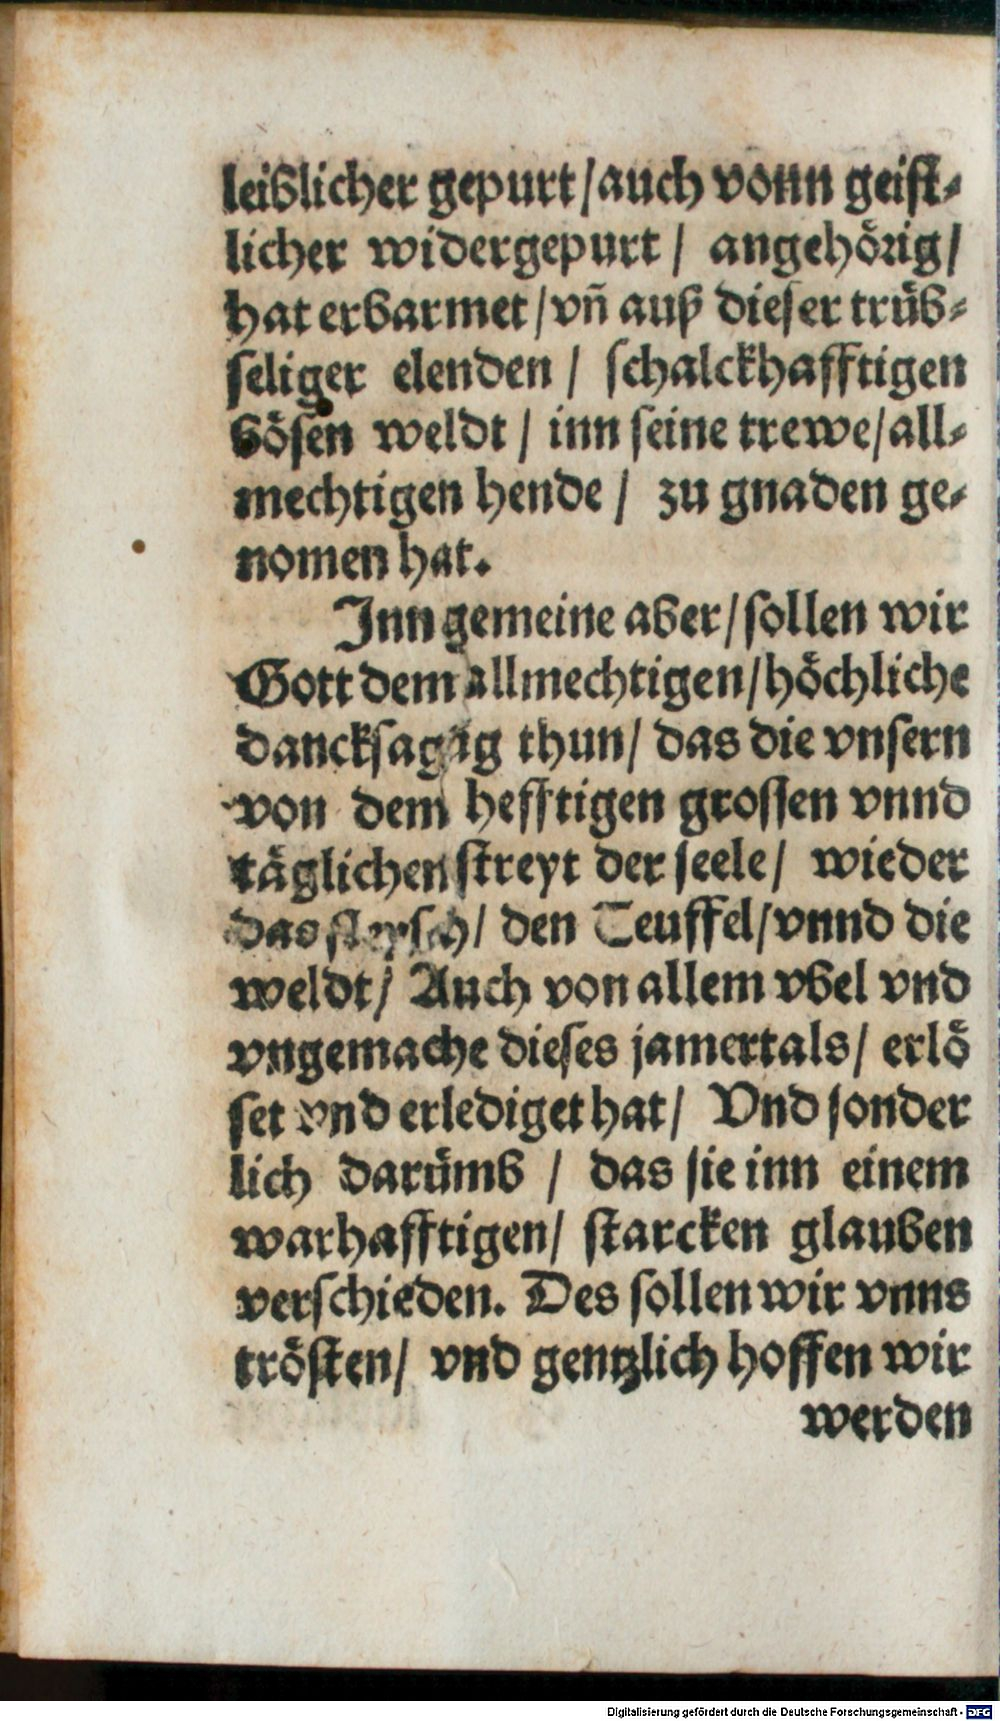 leiblicher gepurt / auch vonn geist⸗
licher widergepurt / angehörig /
hat erbarmet / vñ auß dieser trüb⸗
seliger elenden / schalckhafftigen
bösen weldt / inn seine trewe / all⸗
mechtigen hende / zu gnaden ge⸗
nomen hat.
Inn gemeine aber / sollen wir
Gott dem allmechtigen / höchliche
dancksagūg thun / das die vnsern
von dem hefftigen grossen vnnd
täglichen streyt der seele / wieder
das fleysch / den Teuffel / vnnd die
weldt / Auch von allem vbel vnd
vngemache dieses jamertals / erlö
set vnd erlediget hat / Vnd sonder
lich darümb / das sie inn einem
warhafftigen / starcken glauben
verschieden. Des sollen wir vnns
trösten / vnd gentzlich hoffen wir
werden
Digitalisierung gefördert durch die Deutsche Forschungsgemeinschaft - DFG